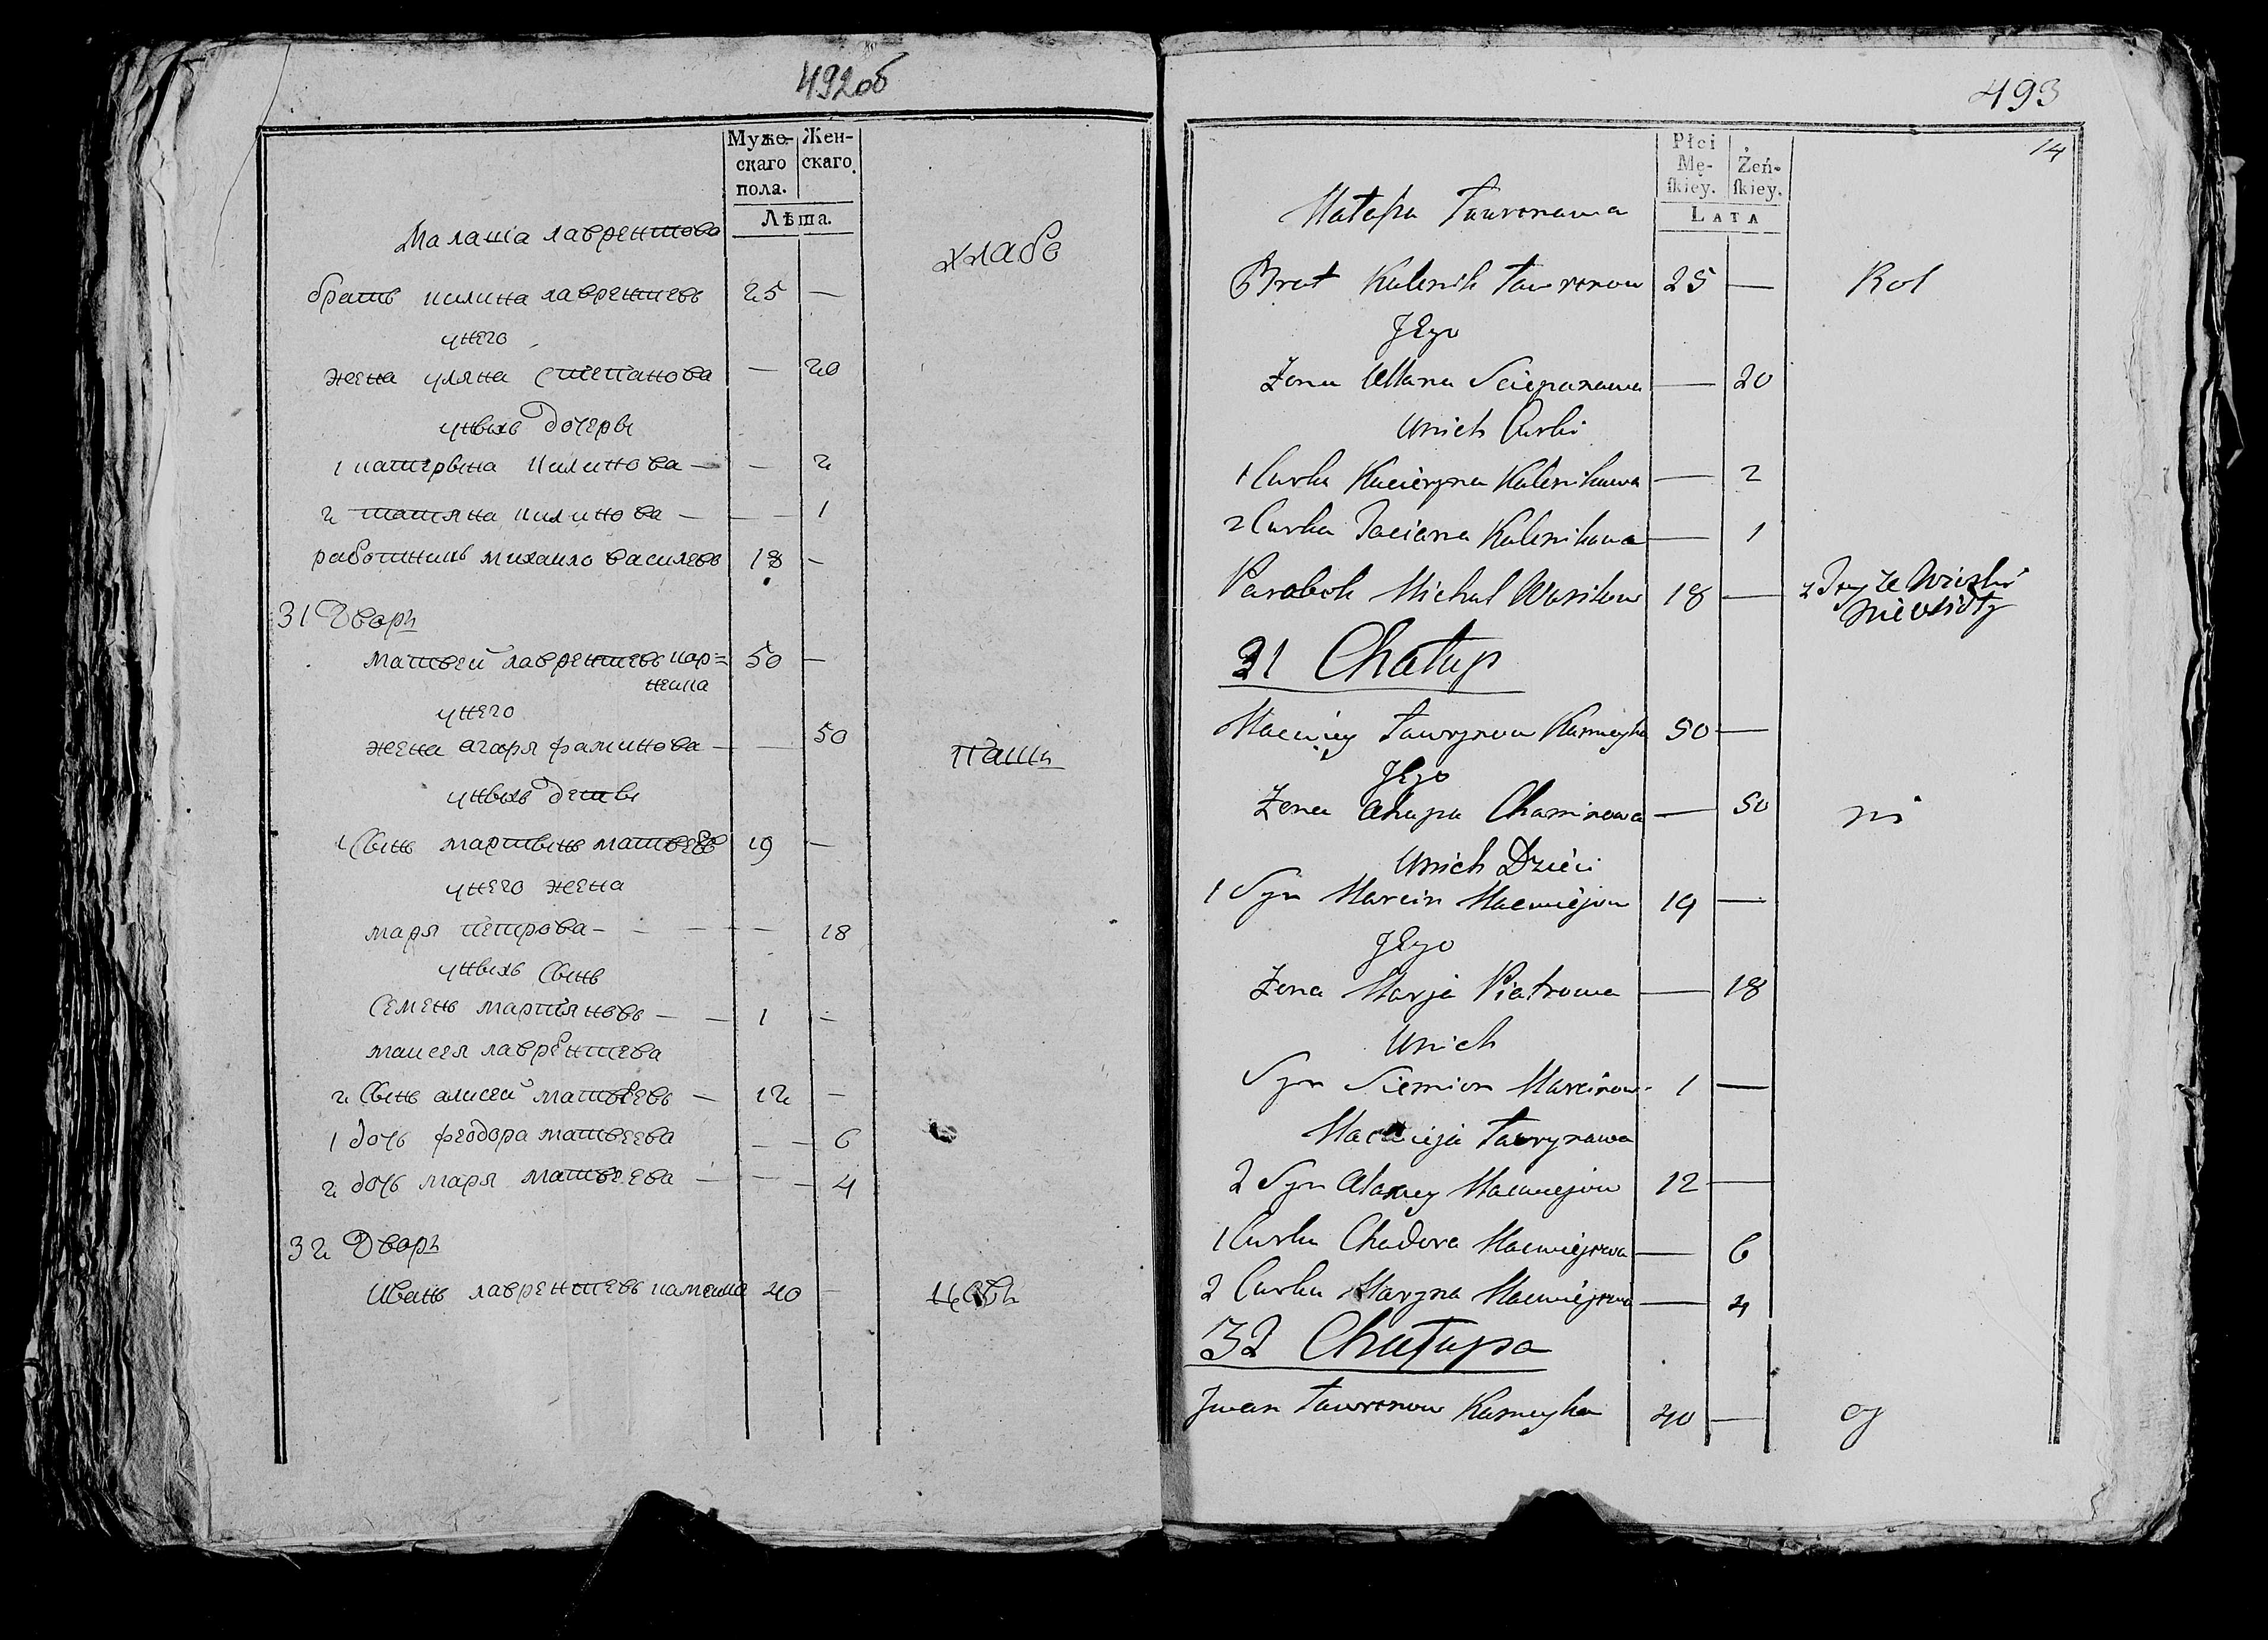 492об
Муже-
скаго
пола.
Жен-
скаго.
Лѣта.
Малаша лавренто
хлабо
братъ лаврентиевъ 25 —
унего
жена уляна степанова — 20
унихъ дочеры
1 катерына — — 2
2 татяна — — 1
работникъ михаило василевъ 18 —
31 Дворъ
матвей лаврентевъ кар= 50 —
нейка
унего
жена агапя фаминова — — 50
пашъ
унихъ дети
1 Сынъ мартынъ матвеевъ 19 —
унего жена
маря петрова — — 18
унихъ Сынъ
Семенъ мартяновъ — 1 —
лаврентева
2 Сынъ алисей матвеевъ — 12 —
1 дочь феодора матвеева — — 6
2 дочь маря матвеева — — 4
32 Дворъ
Иванъ лаврентевъ 40 —
493
14
Płci
Mę-
skiey.
Żeń-
skiey.
Lata
Ławronawa
Brat Kalenik Ławronow 25 — Rol
Jego
Żona Ullana Sciepanawa — 20
Unich Curki
1 Curka Kacieryna Kalenikawa — 2
2 Curka Taciana Kalenikawa — 1
Parobek Michał Wasilow 18 —
31 Chałup
Maciey Ławrynow Karneyka 50 —
Jego
Żona Ahapa Chaminowa — 50 ni
Unich Dzieci
1 Syn Marcin Maciejow 19 —
Jego
Żona Marja Piatrowa — 18
Unich
Syn Siemion Marcinow 1 —
Macieja Ławrynawa
2 Syn Alaxey Maciejow 12 —
1 Curka Chadora Maciejowa — 6
2 Curka Maryna Maciejowa — 4
32 Chałupa
Jwan Ławronow Karneyka 40 —